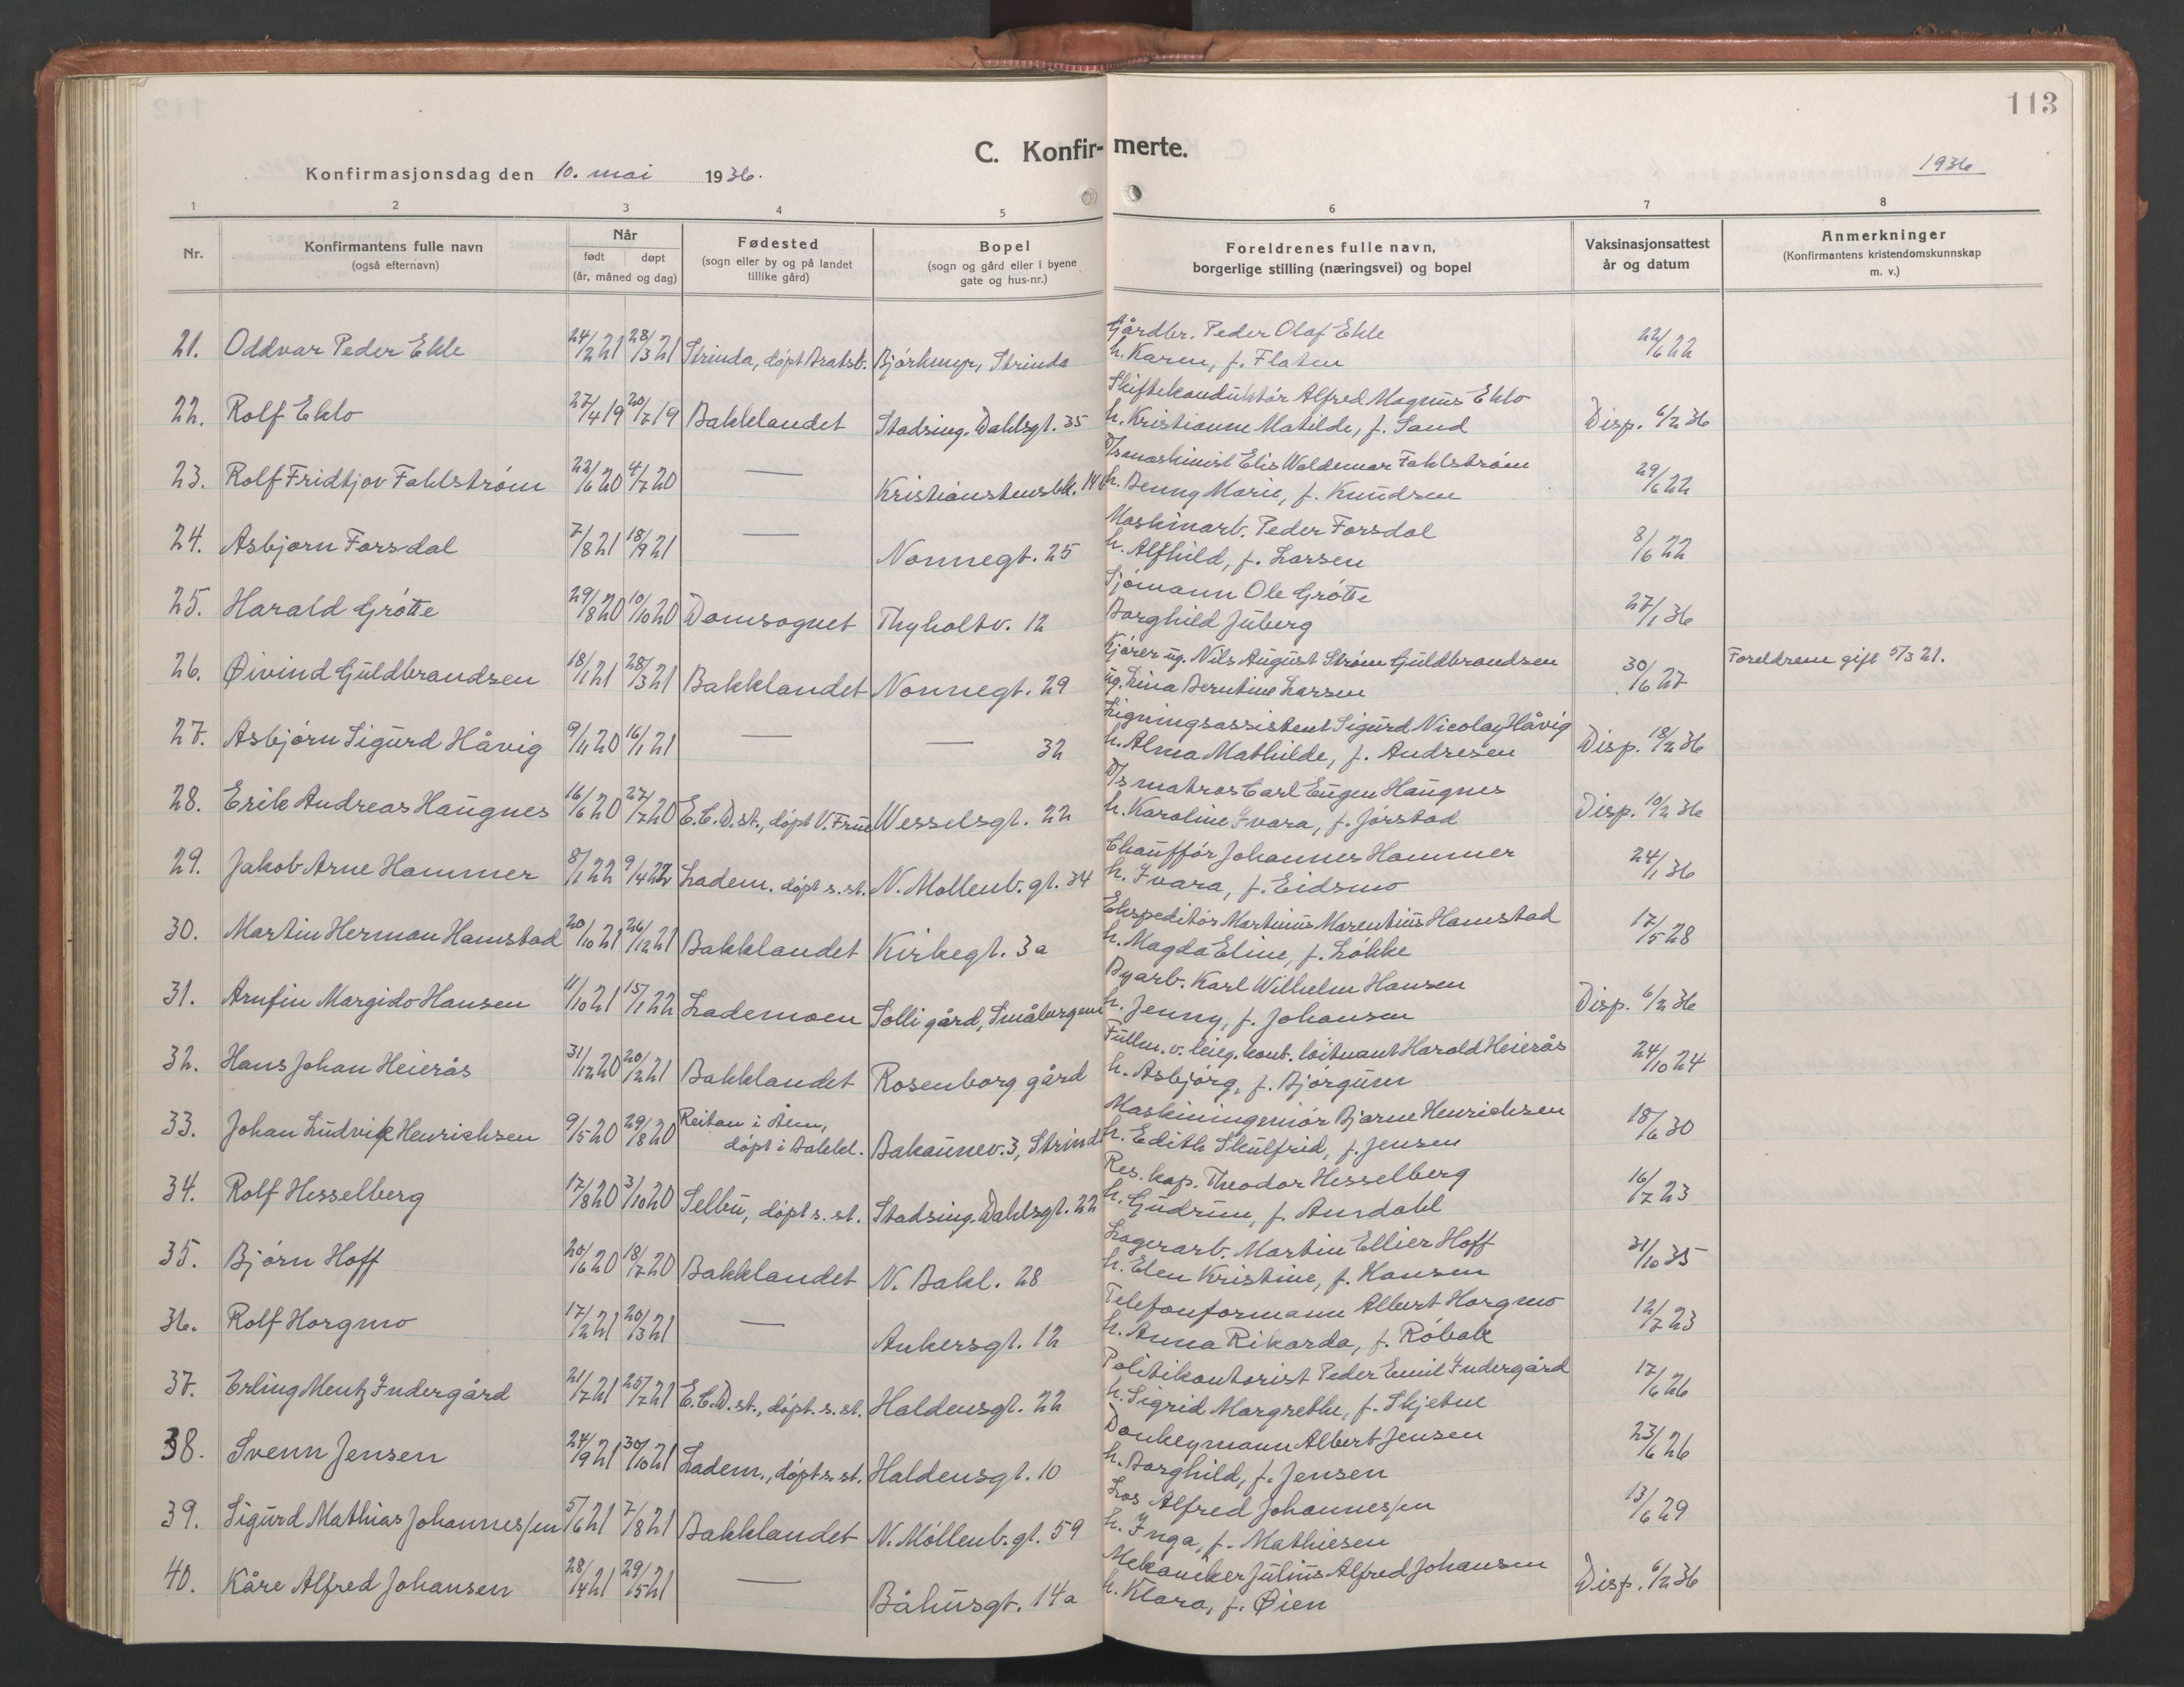 113
C. Konfirmerte.
Konfirmasjonsdag den 10. mai 1936.
1936
1 2 3 4 5 6 7 8
Nr.
Konfirmantens fulle navn
(også efternavn)
Når
født døpt
(år, måned og dag)
Fødested
(sogn eller by og på landet
tillike gård)
Bopel
(sogn og gård eller i byene
gate og hus-nr.)
Foreldrenes fulle navn,
borgerlige stilling (næringsvei) og bopel
Vaksinasjonsattest
år og datum
Anmerkninger
(Konfirmantens kristendomskunnskap
m. v.)
21. Oddvar Peder Ekle 24/2 21 28/3 21 Strinda, døpt Bratsb. Bjørkmyr, Strinda Gårdbr. Peder Olaf Ekle 22/6 22
h. Karen, f. Flaten
22. Rolf Eklo 27/4 19 20/7 19 Bakklandet Stadsing. Dahlsgt. 35 Skiftekonduktør Alfred Magnus Eklo Disp. 6/2 36
h. Kristianne Matilde, f. Sand
23. Rolf Fridtjov Fahlstrøm 22/6 20 4/7 20 — Kristianstensbk. 14b D/s maskinist Elis Waldemar Fahlstrøm 29/6 22
h. Benny Marie, f. Knudsen
24. Asbjørn Forsdal 7/8 21 18/9 21 — Nonnegt. 25 Maskinarb. Peder Forsdal 8/6 22
h. Alfhild, f. Larsen
25. Harald Grøtte 29/8 20 10/10 20 Domsognet Thyholtv. 12 Sjømann Ole Grøtte 27/1 36
Borghild Juberg
26. Øivind Guldbrandsen 18/1 21 28/3 21 Bakklandet Nonnegt. 29 Kjører ug. Nils August Strøm Guldbrandsen 30/6 27 Foreldrene gift 5/3 21.
ug. Lina Berntine Larsen
27. Asbjørn Sigurd Håvig 9/11 20 16/1 21 — — 32 Ligningsassistent Sigurd Nicolay Håvig Disp. 18/2 36
h. Alma Mathilde, f. Andresen
28. Erik Andreas Haugnes 16/6 20 27/7 20 E.C.D.st., døpt V. Frue Wesselsgt. 22 D/s matros Carl Eugen Haugnes Disp. 10/2 36
h. Karoline Ivara, f. Jørstad
29. Jakob Arne Hammer 8/1 22 9/4 22 Ladem. døpt s. st. N. Møllenb. gt. 34 Chauffør Johannes Hammer 24/1 36
h. Ivara, f. Eidsmo
30. Martin Herman Hamstad 20/10 21 26/12 21 Bakklandet Kirkegt. 3a Ekspeditør Martinus Marentius Hamstad 17/5 28
h. Magda Eline, f. Løkke
31. Arnfin Margido Hansen 11/10 21 15/1 22 Lademoen Solli gård, Småbergene Byarb. Karl Wilhelm Hansen Disp. 6/2 36
h. Jenny, f. Johansen
32. Hans Johan Heierås 31/12 20 20/2 21 Bakklandet Rosenborg gård Fullm. v. leieg. kont. løitnant Harald Heierås 24/10 24
h. Asbjørg, f. Bjørgum
33. Johan Ludvik Henrichsen 9/5 20 29/8 20 Reitan i Ålen, døpt i Bakkl. Bakaunev. 3, Strinda Maskiningeniør Bjarne Henrichsen 18/6 30
h. Edith Skulfrid, f. Jensen
34. Rolf Hesselberg 17/8 20 3/10 20 Selbu, døpt s. st. Stadsing. Dahlsgt. 22 Res. kap. Theodor Hesselberg 16/7 23
h. Gudrun, f. Aurdahl
35. Bjørn Hoff 20/6 20 18/7 20 Bakklandet N. Bakl. 28 Lagerarb. Martin Ellier Hoff 31/10 35
h. Elen Kristine, f. Hansen
36. Rolf Horgmo 17/2 21 20/3 21 — Ankersgt. 12 Telefonformann Albert Horgmo 12/7 23
h. Anna Rikarda, f. Røbak
37. Erling Mentz Indergård 21/7 21 25/7 21 E.C.D. st., døpt. s. st. Haldensgt. 22 Politikontorist Peder Emil Indergård 17/6 26
h. Sigrid Margrethe, f. Skjetne
38. Svenn Jensen 24/9 21 30/10 21 Ladem., døpt s. st. Haldensgt. 10 Donkeymann Albert Jensen 23/6 26
h. Borghild, f. Jensen
39. Sigurd Mathias Johannessen 5/6 21 7/8 21 Bakklandet N. Møllenb. gt. 59 Los Alfred Johannessen 13/6 29
h. Inga, f. Mathiesen
40. Kåre Alfred Johansen 28/4 21 29/5 21 — Båhusgt. 14a Mekaniker Julius Alfred Johansen Disp. 6/2 36
h. Klara, f. Øien